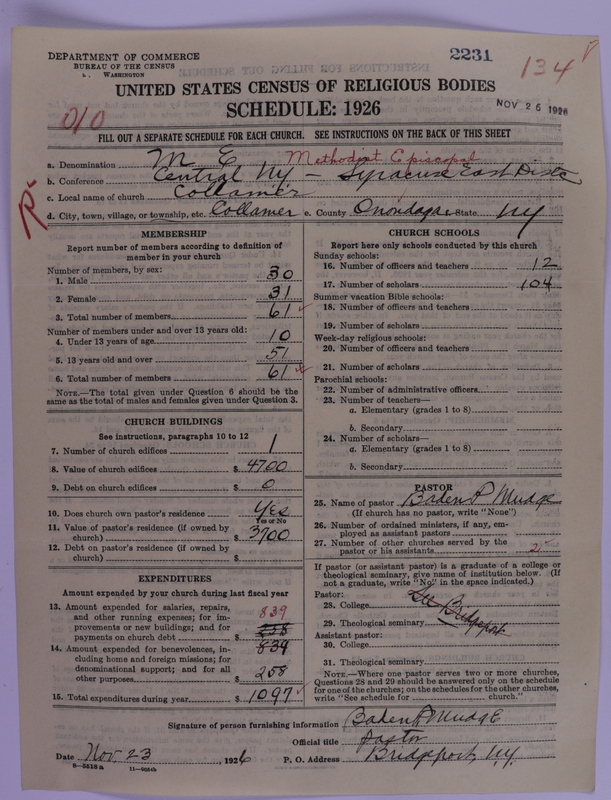 DEPARTMENT OF COMMERCE
BUREAU OF THE CENSUS
WASHINGTON
2231
134
UNITED STATES CENSUS OF RELIGIOUS BODIES
SCHEDULE: 1926
NOV 26 1926
010
FILL OUT A SEPARATE SCHEDULE FOR EACH CHURCH. SEE INSTRUCTIONS ON THE BACK OF THIS SHEET
a. Denomination M E Methodist Episcopal
b. Conference Central NY – Syracuse East Dist
c. Local name of church Collamer
d. City, town, village, or township, etc. Collamer e. County Onondaga State NY
MEMBERSHIP
Report number of members according to definition of
member in your church
Number of members, by sex:
1. Male 30
2. Female 31
3. Total number of members 61
Number of members under and over 13 years old:
4. Under 13 years of age 10
5. 13 years old and over 51
6. Total number of members 61
NOTE.—The total given under Question 6 should be the
same as the total of males and females given under Question 3.
CHURCH BUILDINGS
See instructions, paragraphs 10 to 12
7. Number of church edifices 1
8. Value of church edifices $ 4700
9. Debt on church edifices $ 0
10. Does church own pastor's residence? Yes
Yes or No
11. Value of pastor's residence (if owned by
church) $ 3700
12. Debt on pastor's residence (if owned by
church) $
EXPENDITURES
Amount expended by your church during last fiscal year
13. Amount expended for salaries, repairs, 839
and other running expenses; for im-
provements or new buildings; and for
payments on church debt $ 258
14. Amount expended for benevolences, in- 839
cluding home and foreign missions; for
denominational support; and for all
other purposes $ 258
15. Total expenditures during year $ 1097
CHURCH SCHOOLS
Report here only schools conducted by this church
Sunday schools:
16. Number of officers and teachers 12
17. Number of scholars 104
Summer vacation Bible schools:
18. Number of officers and teachers
19. Number of scholars
Week-day religious schools:
20. Number of officers and teachers
21. Number of scholars
Parochial schools:
22. Number of administrative officers
23. Number of teachers—
a. Elementary (grades 1 to 8)
b. Secondary
24. Number of scholars—
a. Elementary (grades 1 to 8)
b. Secondary
PASTOR
25. Name of pastor Baden P Mudge
(If church has no pastor, write "None")
26. Number of ordained ministers, if any, em-
ployed as assistant pastors
27. Number of other churches served by the
pastor or his assistants 2
If pastor (or assistant pastor) is a graduate of a college or
theological seminary, give name of institution below. (If
not a graduate, write "No" in the space indicated.)
Pastor:
28. College See Bridgeport
29. Theological seminary
Assistant pastor:
30. College
31. Theological seminary
NOTE.—Where one pastor serves two or more churches,
Questions 28 and 29 should be answered only on the schedule
for one of the churches; on the schedules for the other churches,
write "See schedule for church."
Signature of person furnishing information Baden P Mudge
Official title Pastor
Date Nov 23, 1926 P. O. Address Bridgeport, N.Y.
8—5518a